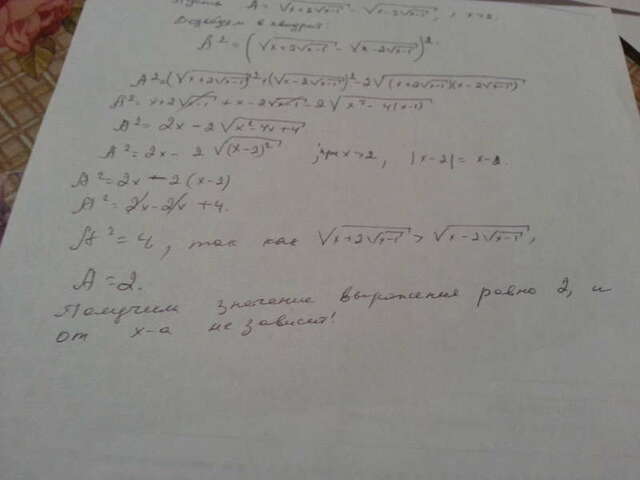 Пусть A = √(x+2√(x-1)) - √(x-2√(x-1)), x>2.
Возведем в квадрат:
A² = (√(x+2√(x-1)) - √(x-2√(x-1)))².
A² = (√(x+2√(x-1)))² + (√(x-2√(x-1)))² - 2√((x+2√(x-1))(x-2√(x-1)))
A² = x+2√(x-1) + x-2√(x-1) - 2√(x²-4(x-1))
A² = 2x - 2√(x²-4x+4)
A² = 2x - 2√((x-2)²) , при x>2, |x-2| = x-2.
A² = 2x - 2(x-2)
A² = 2x-2x+4.
A² = 4, так как √(x+2√(x-1)) > √(x-2√(x-1)),
A = 2.
Получим значение выражения равно 2, и
от x-а не зависит!